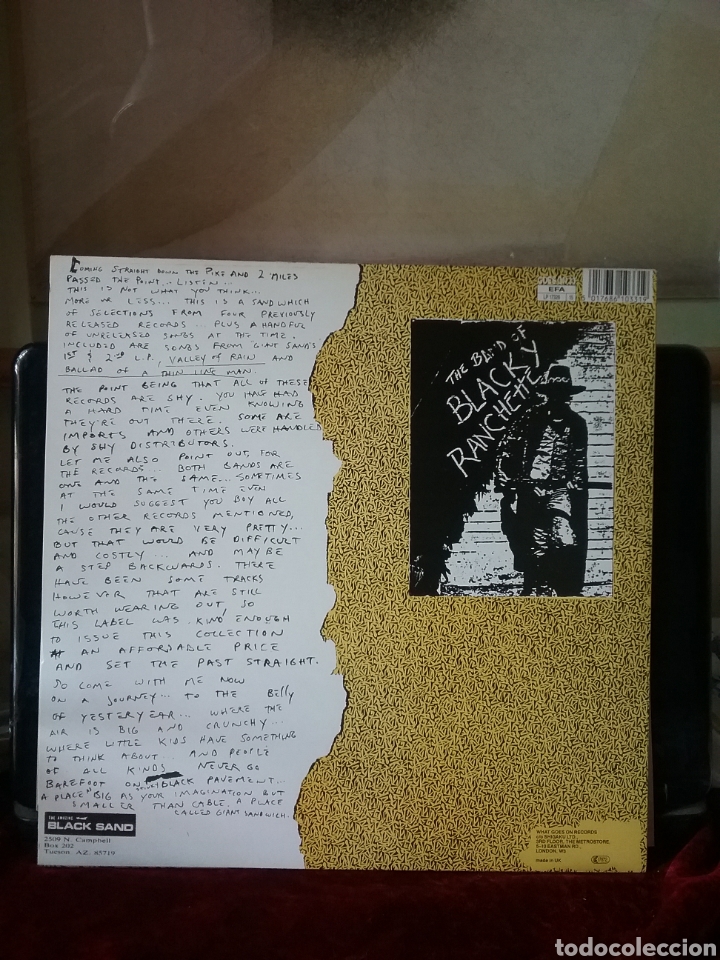 COMING STRAIGHT DOWN THE PIKE AND 2 MILES
PASSED THE POINT.. LISTEN...
THIS IS NOT WHAT YOU THINK...
MORE OR LESS... THIS IS A SANDWHICH
OF SELECTIONS FROM FOUR PREVIOUSLY
RELEASED RECORDS... PLUS A HANDFUL
OF UNRELEASED SONGS AT THE TIME.
INCLUDED ARE SONGS FROM GIANT SAND'S
1ST & 2ND L.P., VALLEY OF RAIN AND
BALLAD OF A THIN LINE MAN.
THE POINT BEING THAT ALL OF THESE
RECORDS ARE SHY. YOU HAVE HAD
A HARD TIME EVEN KNOWING
THEY'RE OUT THERE. SOME ARE
IMPORTS AND OTHERS WERE HANDLED
BY SHY DISTRIBUTORS.
LET ME ALSO POINT OUT, FOR
THE RECORDS.. BOTH BANDS ARE
ONE AND THE SAME... SOMETIMES
AT THE SAME TIME EVEN
I WOULD SUGGEST YOU BUY ALL
THE OTHER RECORDS MENTIONED,
CAUSE THEY ARE VERY PRETTY...
BUT THAT WOULD BE DIFFICULT
AND COSTLY... AND MAYBE
A STEP BACKWARDS. THERE
HAVE BEEN SOME TRACKS
HOWEVER THAT ARE STILL
WORTH WEARING OUT, SO
THIS LABEL WAS KIND ENOUGH
TO ISSUE THIS COLLECTION
AT AN AFFORDABLE PRICE
AND SET THE PAST STRAIGHT.
SO COME WITH ME NOW
ON A JOURNEY... TO THE BELLY
OF YESTERYEAR... WHERE THE
AIR IS BIG AND CRUNCHY...
WHERE LITTLE KIDS HAVE SOMETHING
TO THINK ABOUT... AND PEOPLE
OF ALL KINDS NEVER GO
BAREFOOT ON BLACK PAVEMENT...
A PLACE BIG AS YOUR IMAGINATION BUT
SMALLER THAN CABLE. A PLACE
CALLED GIANT SANDWICH.
BLACK SAND
2509 N. Campbell
Box 202
Tucson, AZ. 85719
EFA
THE BLOOD OF
BLACKY
RANCHETTE
WHAT GOES ON RECORDS
3RD FLOOR, THE METROSTORE,
5-10 EASTMAN RD.,
LONDON, W3
made in UK
todocoleccion